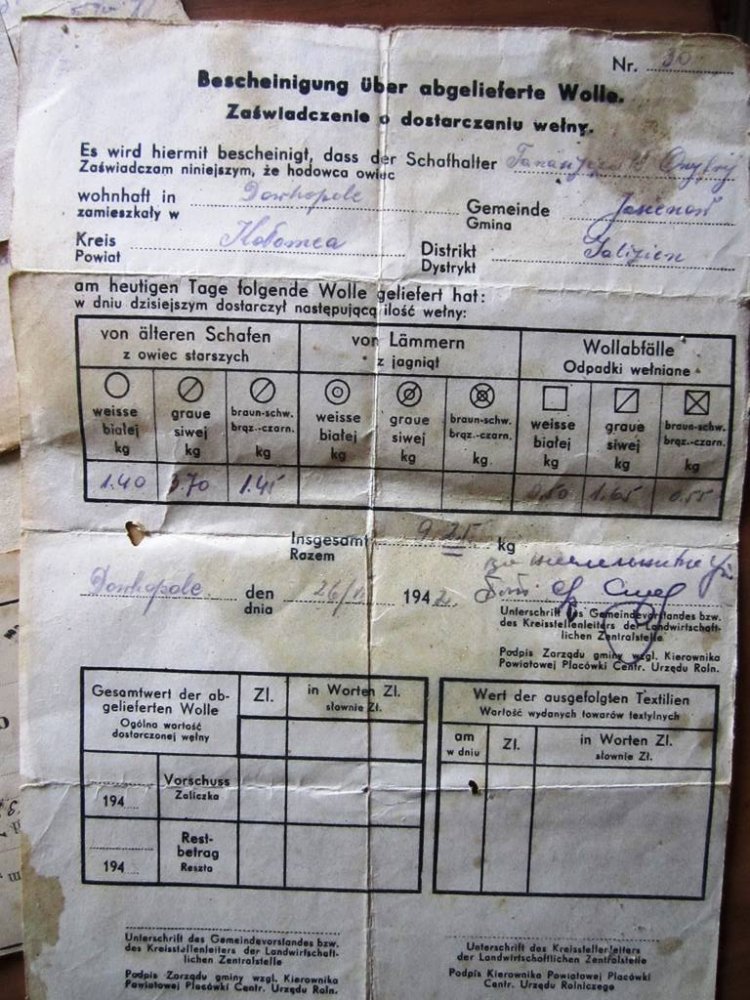 Nr. 30
Bescheinigung über abgelieferte Wolle.
Zaświadczenie o dostarczaniu wełny.
Es wird hiermit bescheinigt, dass der Schafhalter
Zaświadczam niniejszym, że hodowca owiec
wohnhaft in Dowhopole Gemeinde
zamieszkały w Gmina
Kreis Kołomea Distrikt Galizien
Powiat Dystrykt
am heutigen Tage folgende Wolle geliefert hat:
w dniu dzisiejszym dostarczył następującą ilość wełny:
von älteren Schafen von Lämmern Wollabfälle
z owiec starszych z jagniąt Odpadki wełniane
weisse graue braun-schw. weisse graue braun-schw. weisse graue braun-schw.
białej siwej brąz.-czarn. białej siwej brąz.-czarn. białej siwej brąz.-czarn.
kg kg kg kg kg kg kg kg kg
1.40 3.70 1.45 0.50 1.65 0.55
Insgesamt 9.25 kg
Razem
Dowhopole den 26/ 1942
dnia
Unterschrift des Gemeindevorstandes bzw.
des Kreisstellenleiters der Landwirtschaft-
lichen Zentralstelle
Podpis Zarządu gminy wzgl. Kierownika
Powiatowej Placówki Centr. Urzędu Roln.
Gesamtwert der ab-
gelieferten Wolle
Ogólna wartość
dostarczonej wełny
Zł. in Worten Zł.
słownie Zł.
194 Vorschuss
Zaliczka
194 Rest-
betrag
Reszta
Wert der ausgefolgten Textilien
Wartość wydanych towarów textylnych
am Zł. in Worten Zł.
w dniu słownie Zł.
Unterschrift des Gemeindevorstandes bzw.
des Kreisstellenleiters der Landwirtschaft-
lichen Zentralstelle
Podpis Zarządu gminy wzgl. Kierownika
Powiatowej Placówki Centr. Urzędu Roln.
Unterschrift des Kreisstellenleiters
der Landwirtschaftlichen Zentralstelle
Podpis Kierownika Powiatowej Placówki
Centr. Urzędu Rolniczego